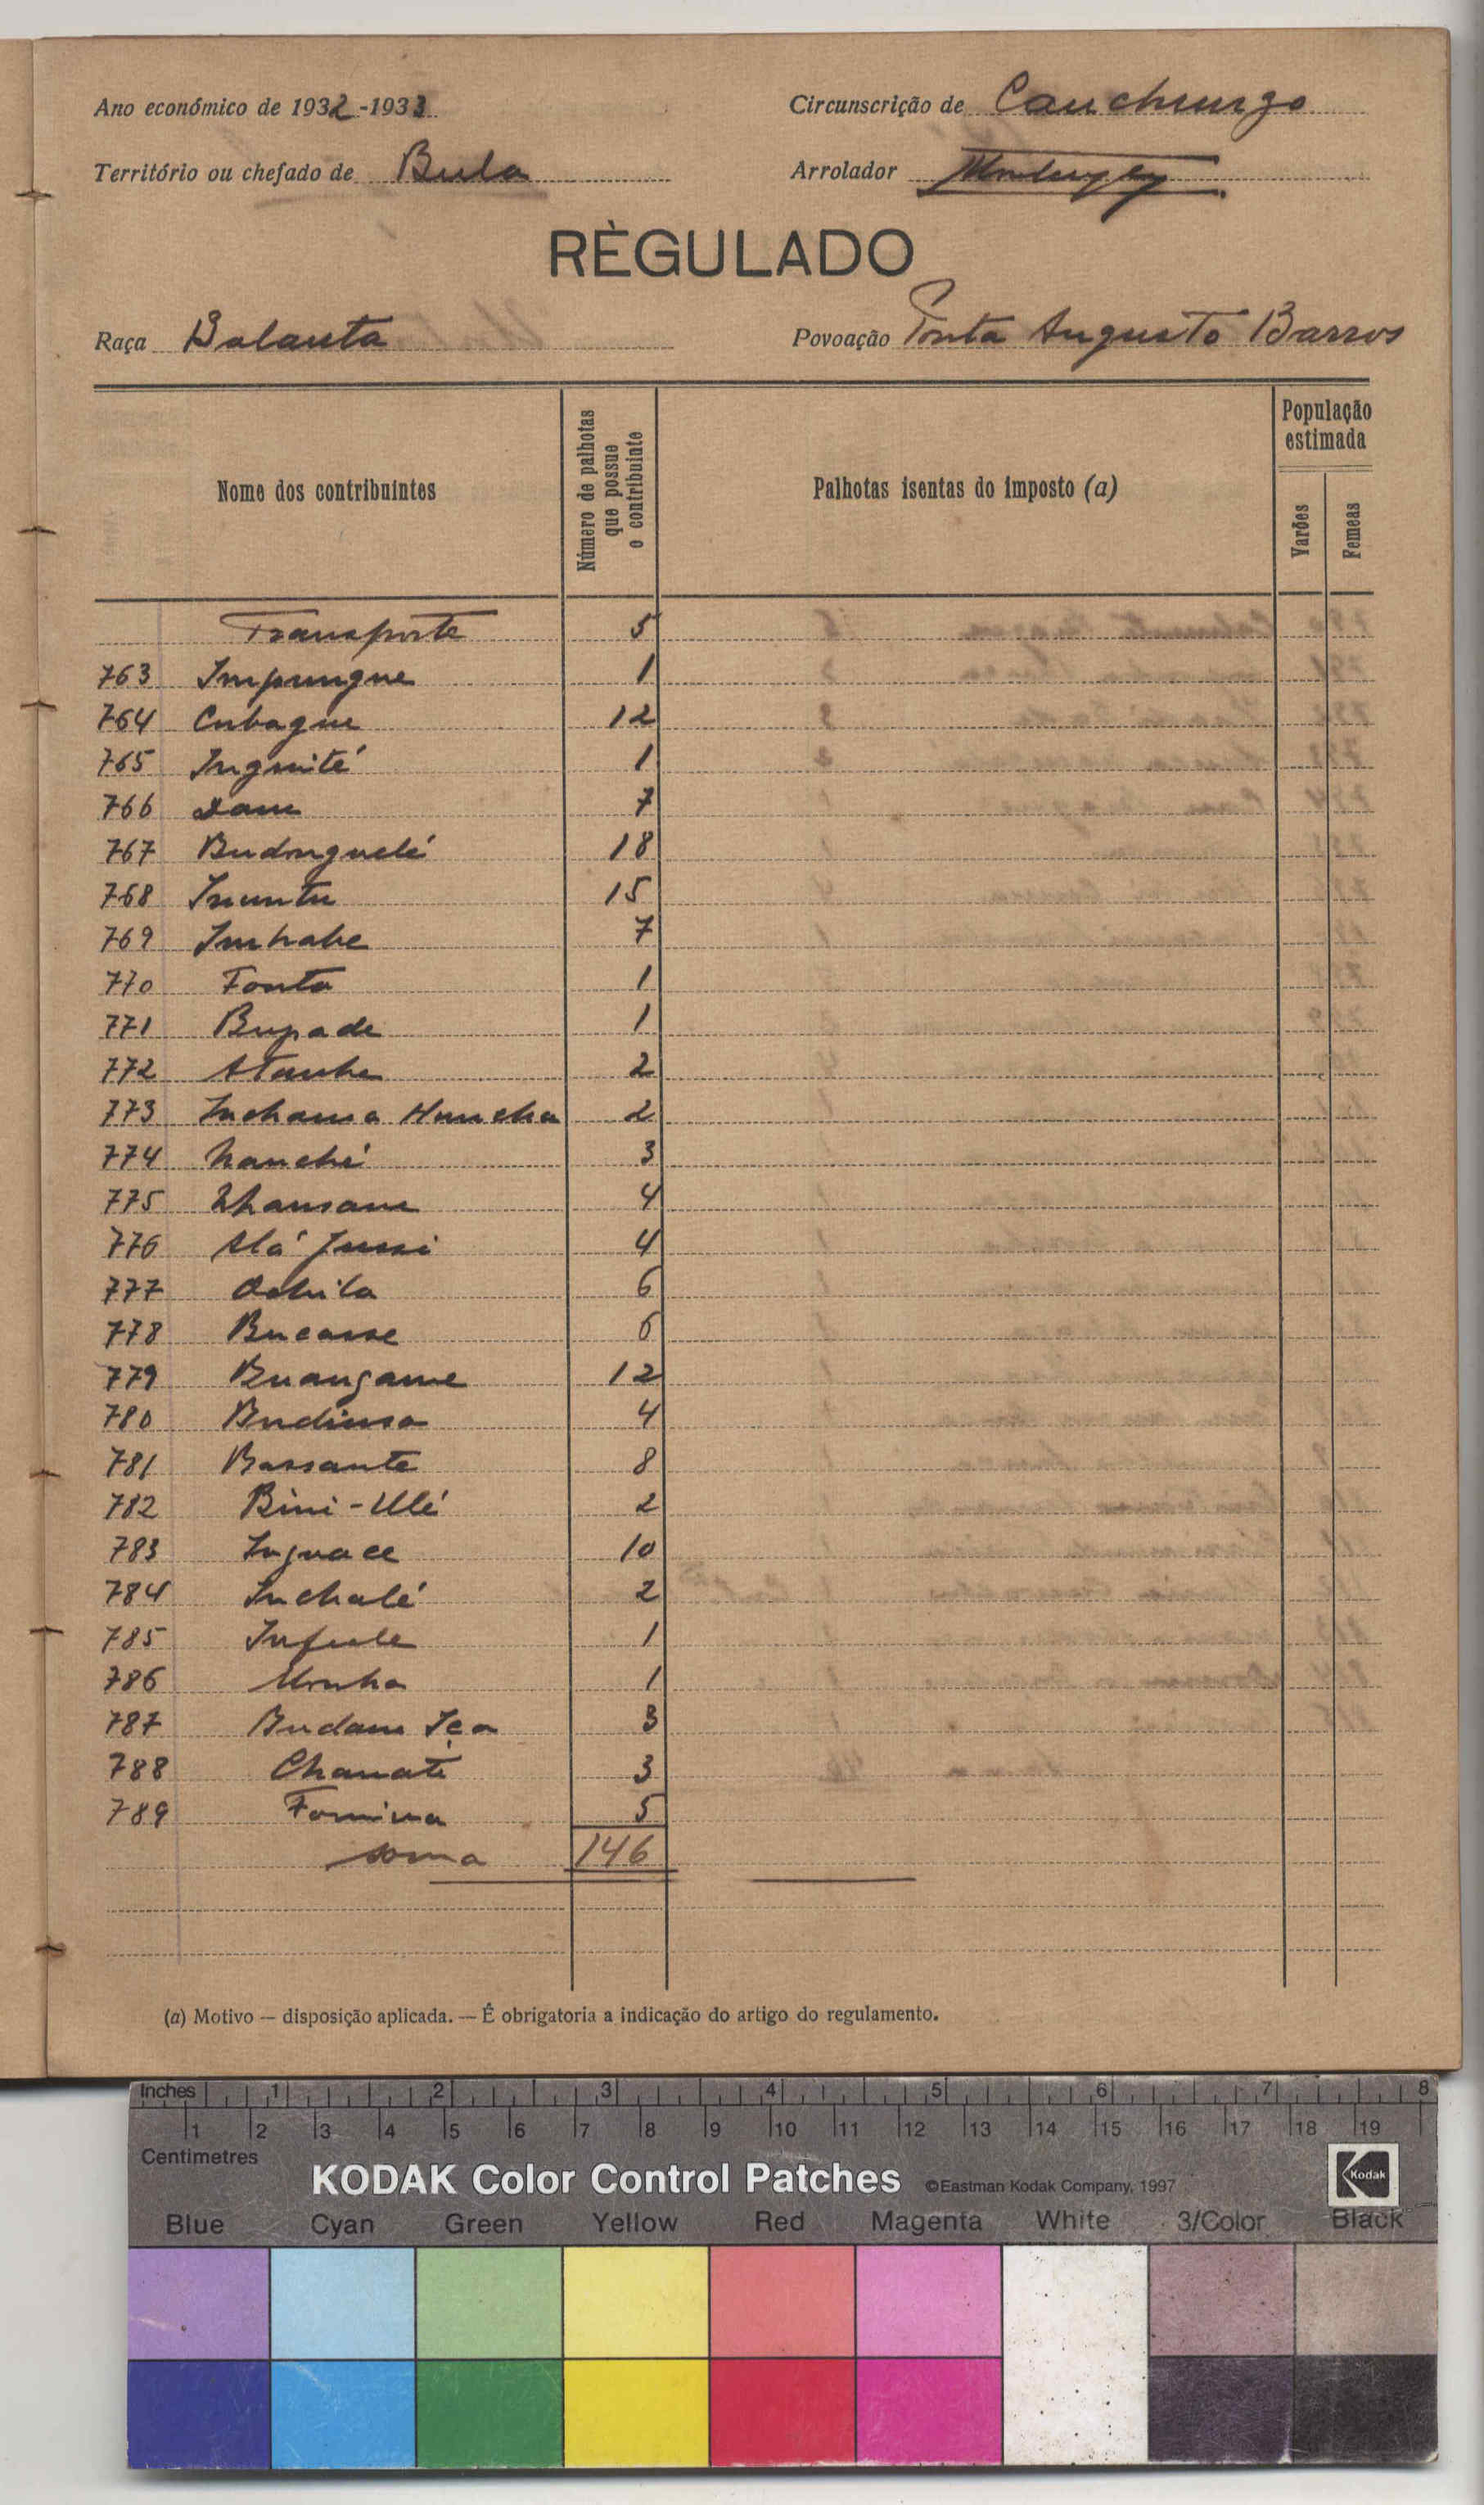 Ano económico de 1932-1933
Circunscrição de Canchungo
Território ou chefado de Bula
Arrolador
RÈGULADO
Raça Balanta
Povoação Ponta Augusto Barros
Nome dos contribuintes
Número de palhotas que possue o contribuinte
Palhotas isentas do imposto (a)
População estimada
Varões
Femeas
Transporte 5
763 Impungue 1
764 Cubague 12
765 Inguité 1
766 Dam 7
767 Budonguelé 18
768 Inuntu 15
769 Inhabe 7
770 Fonta 1
771 Bupade 1
772 2
773 Inchama Huncha 2
774 Nanché 3
775 4
776 4
777 6
778 Bucasse 6
779 Buangame 12
780 Budinsa 4
781 Bassante 8
782 Bini-Ulé 2
783 10
784 Inchalé 2
785 1
786 1
787 3
788 Chamate 3
789 5
soma 146
(a) Motivo — disposição aplicada. — É obrigatoria a indicação do artigo do regulamento.
Inches 1 2 3 4 5 6 7 8
1 2 3 4 5 6 7 8 9 10 11 12 13 14 15 16 17 18 19
Centimetres
KODAK Color Control Patches ©Eastman Kodak Company, 1997 Kodak
Blue Cyan Green Yellow Red Magenta White 3/Color Black